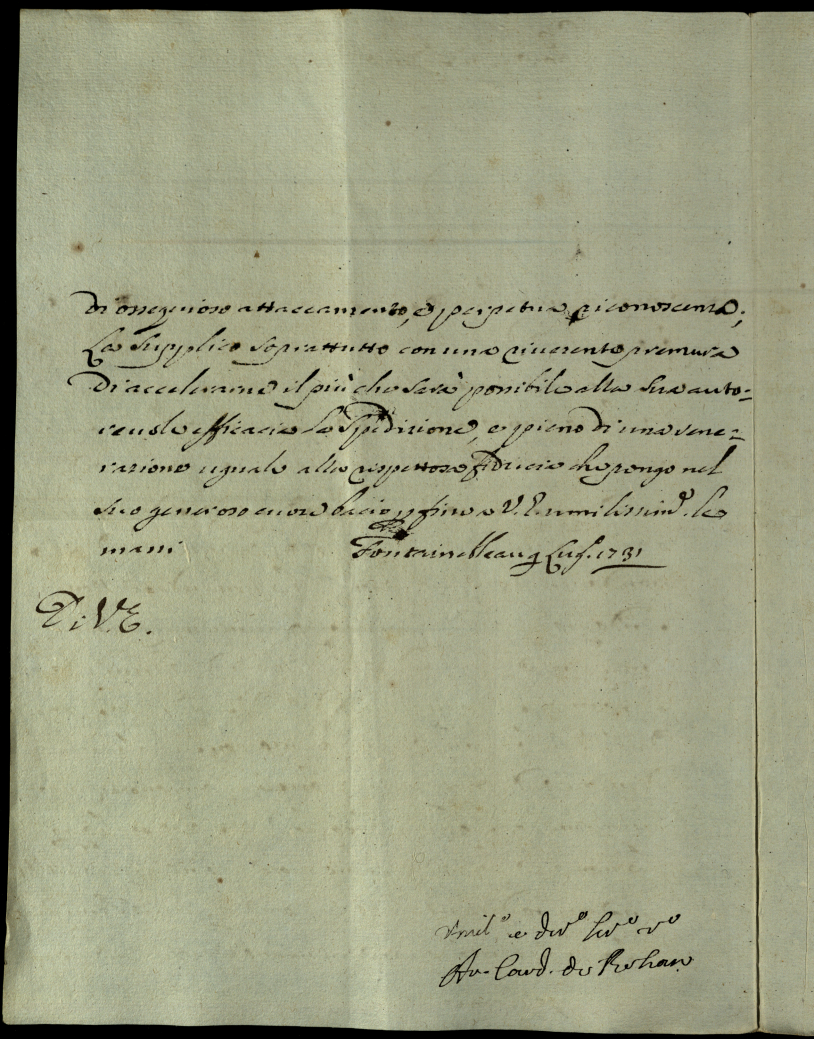 di ossequioso attaccamento, e perpetua riconoscenza;
La Supplico soprattutto con una riuerente premura
di accelerarne il più che sarà possibile alla sua auto=
reuole efficacia la Spedizione, e pieno di una vene=
razione uguale alla rispettosa fiducia che pongo nel
suo generoso cuore bacio p fine a V. E. umilissimᵉ. le
mani Fontainebleau 9 Lug. 1731
Di V. E.
Vmilº e diuº seruº vº
Ar. Card. de Rohan